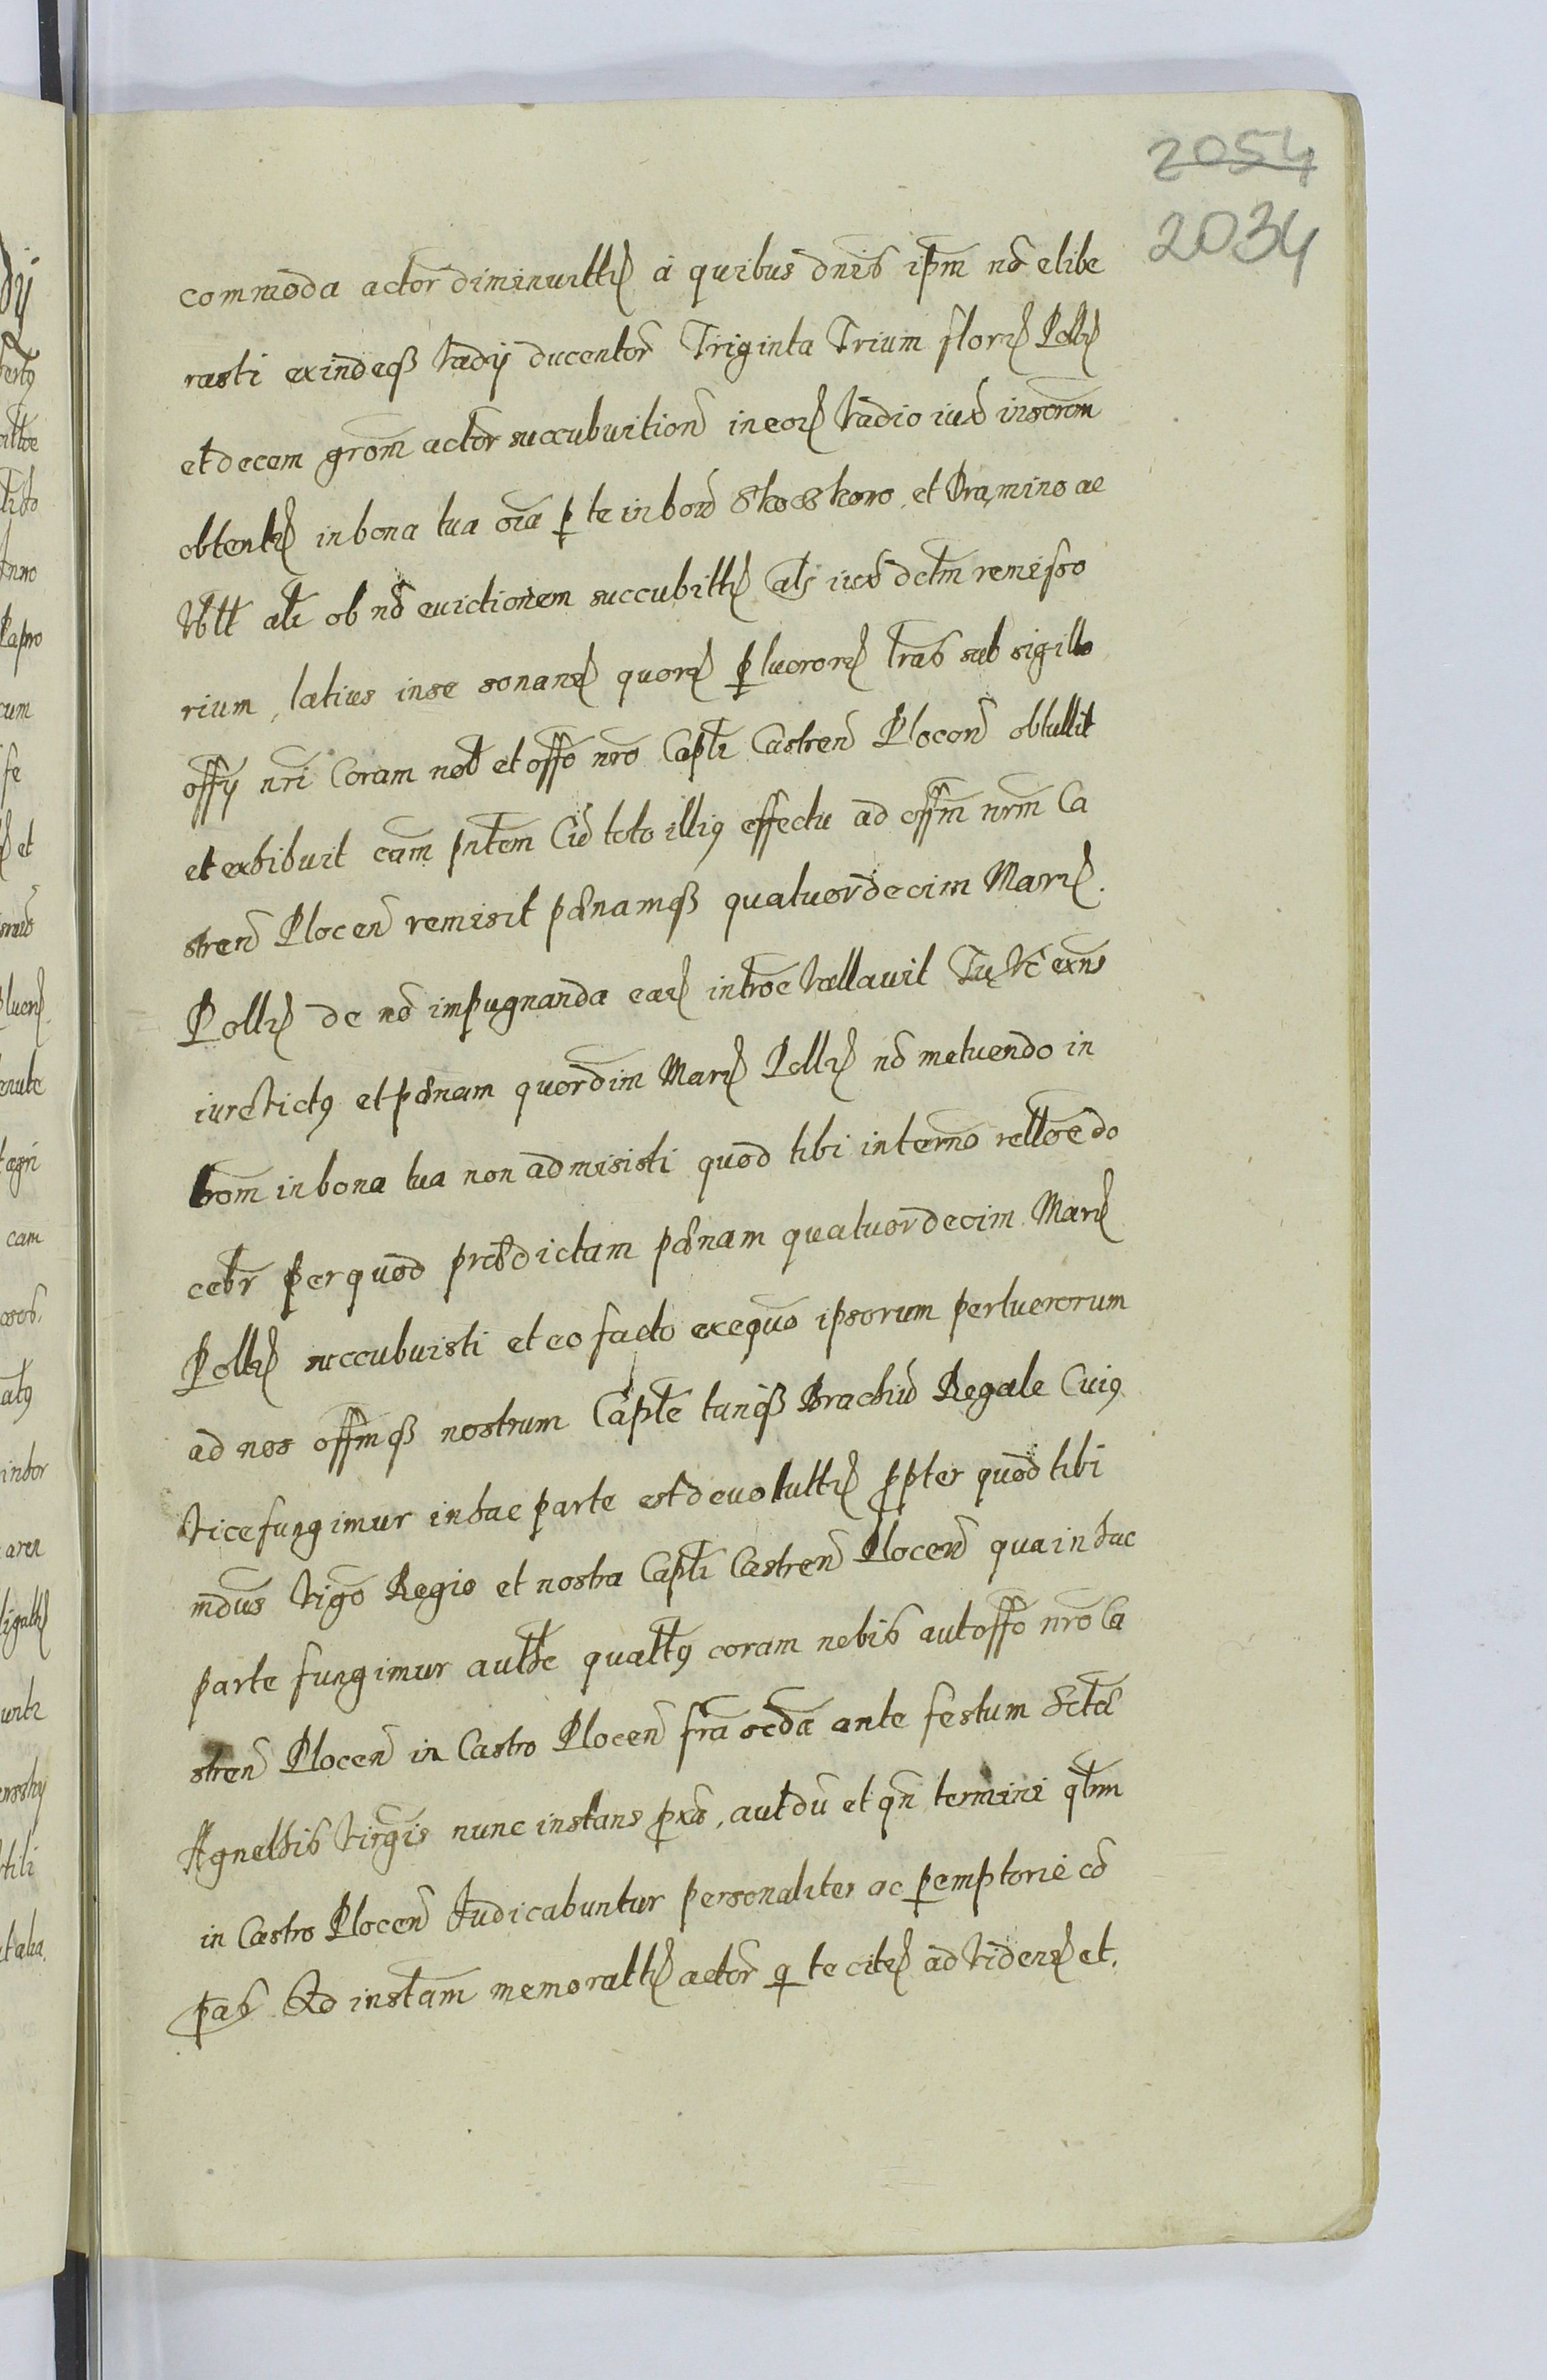 2054
2034
commoda actor diminuitt a quibus dnis ipm nō elibe
rasti exindeq3 Vadij ducentor Triginta Trium flor Poll
et decem grom actor succubuition in eor Vadio iux inscrom
obtent in bona tua oia p te in bon et Bramino ac
att ob nō evictionem succubitt als iux dctm remisso
rium, latius in se sonan quor p luoror lras sub sigillo
offy nri Coram nob et offo nro Capli Castren Plocen obtullit
et exhibuit eam pntem Cū toto illig effectu ad offm nrm Ca
stren Plocen remisit poenamq3 quatuordecim Mar.
Poll de nō impugnanda ear introe Vallavit Tu exns
iure victg et poenam quordim Mar Poll nō metuendo in
trom in bona tua non admisisti quod tibi in termo relloe do
cebr per quod proedictam poenam quatuordecim Mar
Poll succubuisti et eo facto exequo ipsorum perlucrorum
ad nos offmq3 nostrum Caple tanq3 Brachiū Regale Cuig
Vice fungimur in hac parte est devolutt ppter quod tibi
mdus Vigo Regio et nostra Capli Castren Plocen qua in hac
parte fungimur authe quattg coram nobis aut offo nro Ca
stren Plocen in Castro Plocen fra scda ante festum Sctæ
Agnethis Virgis nunc instans pxo, aut dū et qn termini qtnm
in Castro Plocen Judicabuntur personaliter ac pemptorie cō
pas Ad instam memoratt actor q te cit ad Viden et.